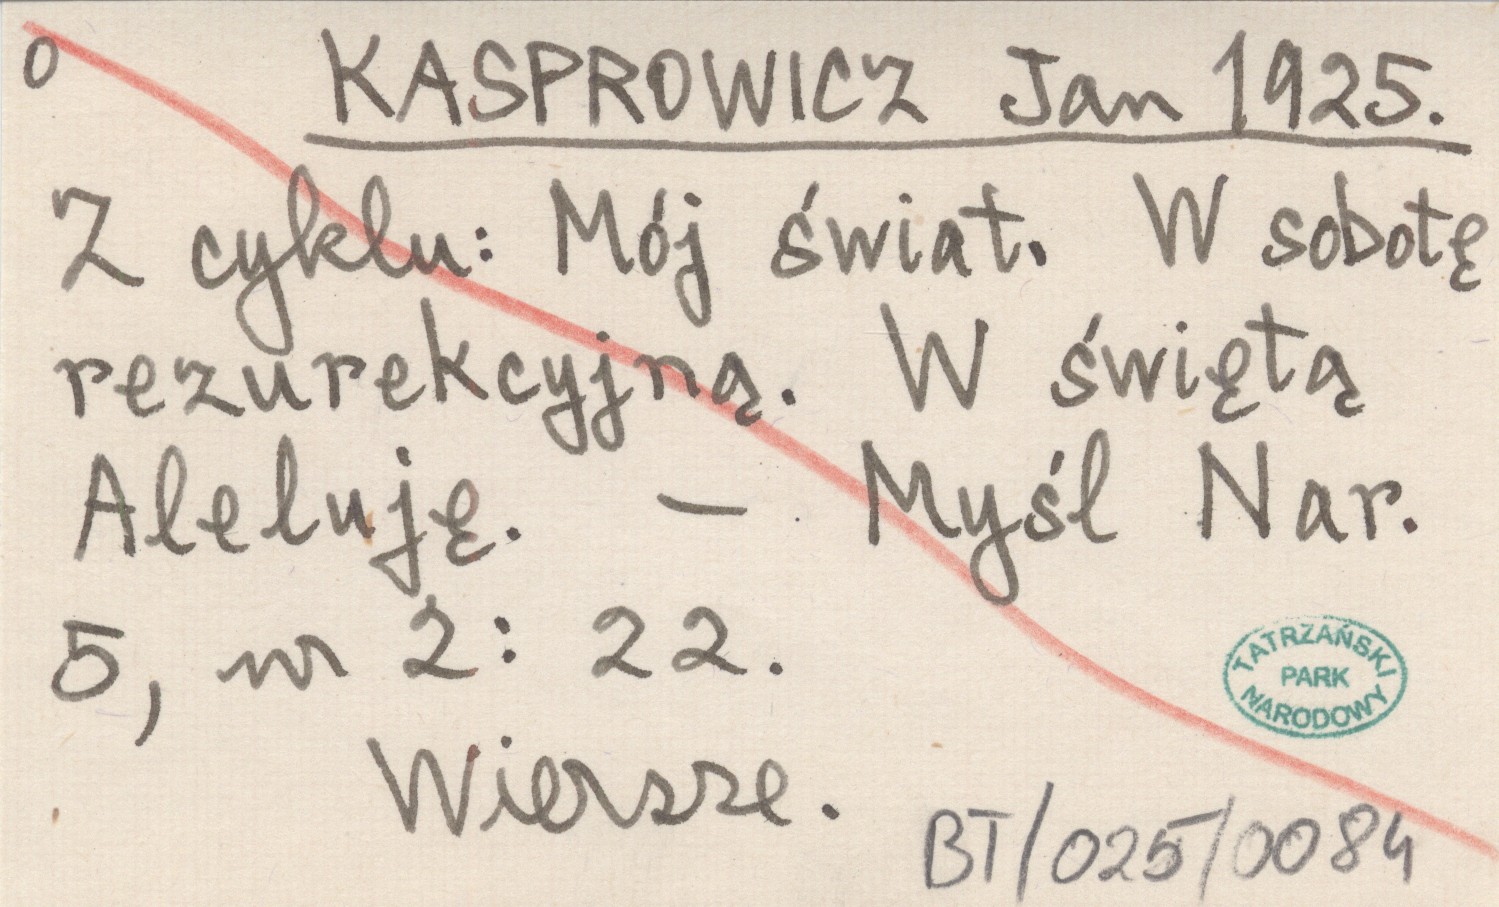 0
KASPROWICZ Jan 1925.
Z cyklu: Mój świat. W sobotę
rezurekcyjną. W świętą
Aleluję. – Myśl Nar.
5, nr 2: 22.
TATRZAŃSKI
PARK
NARODOWY
Wiersze.
BT/025/0084